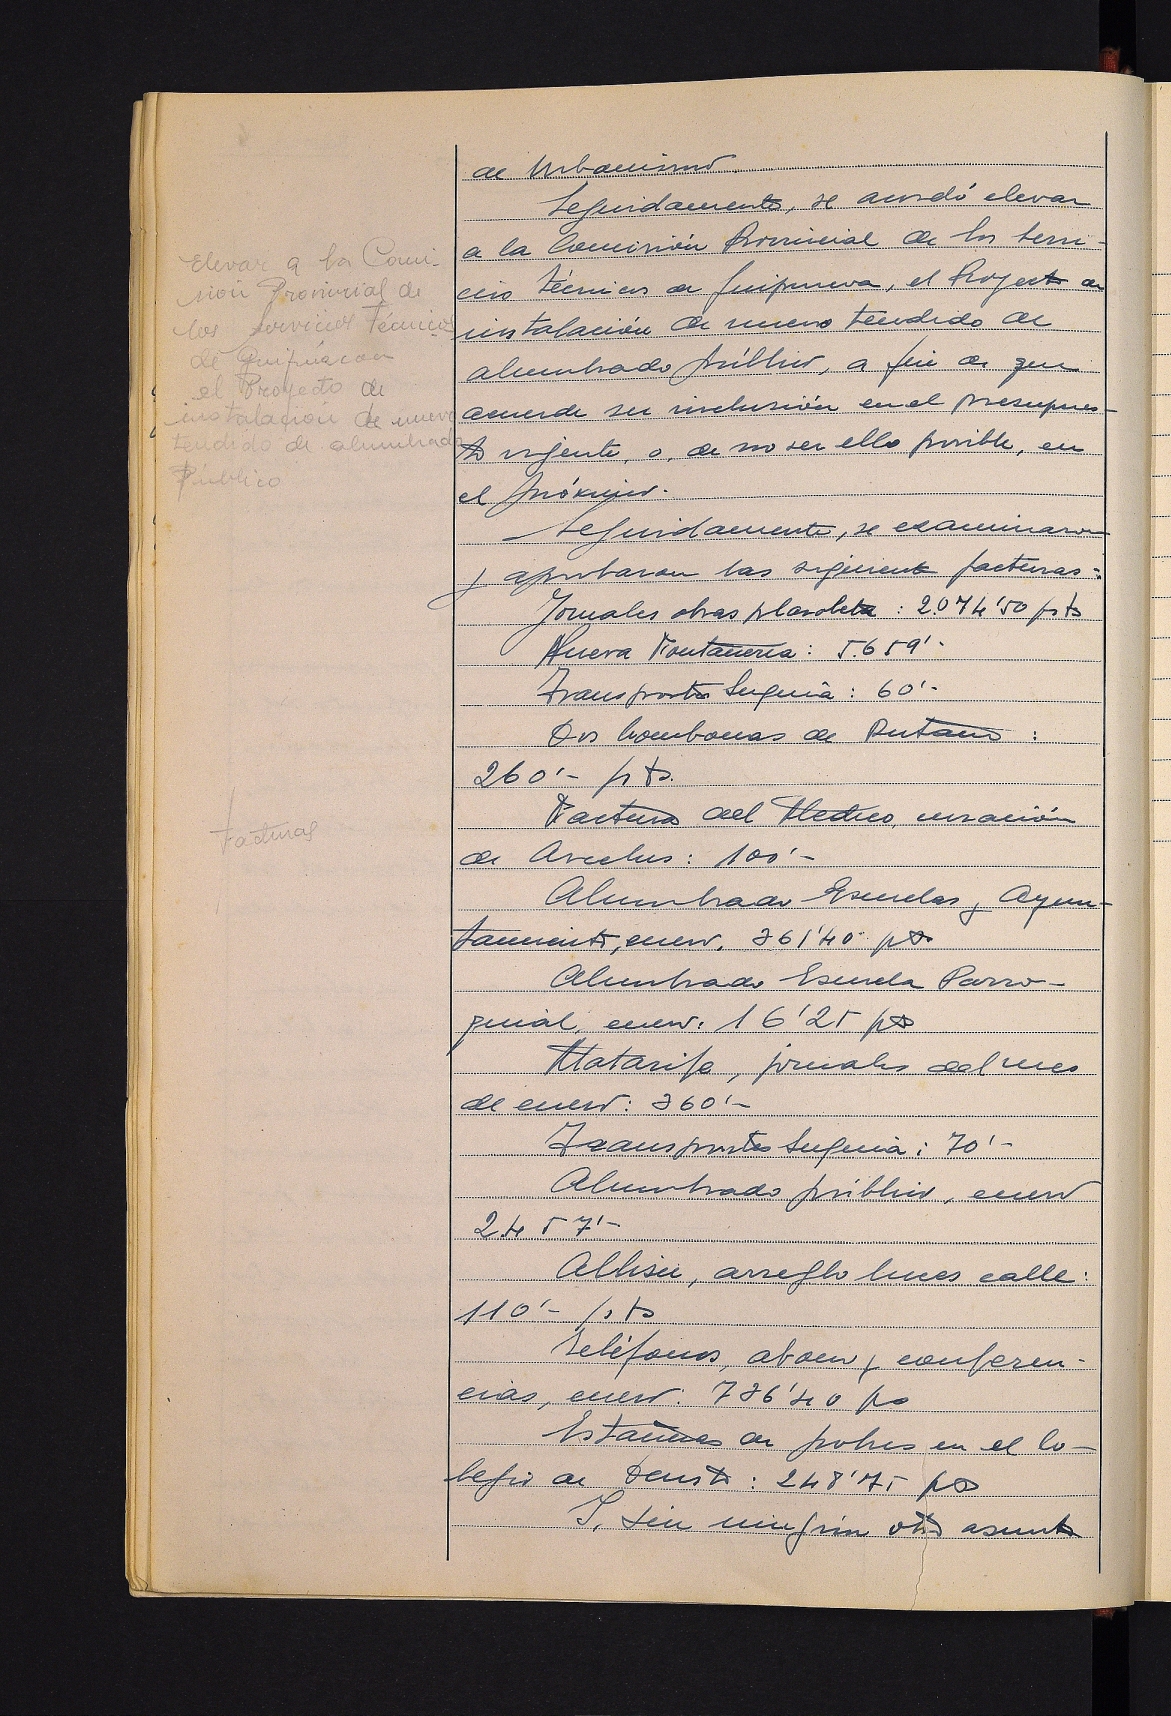 de Urbanismo.
Seguidamente, se acordó elevar
a la Comisión Provincial de los Servi-
cios Técnicos de Guipúzcoa, el Proyecto de
instalación de nuevo tendido de
alumbrado público, a fin de que
acuerde su inclusión en el presupues-
to vigente, o, de no ser ello posible, en
el próximo.
Seguidamente, se examinaron
y aprobaron las siguientes facturas:
Jornales obras plazoleta: 2.074'50 pts
Nueva Fontanería: 5.659'-
Transportes Inguía: 60'-
Dos bombonas de Butano:
260'- pts.
Factura del Médico, curación
de : 100'-
Alumbrado Escuelas y Ayun-
tamiento, enero. 361'40 pts
Alumbrado Escuela Parro-
quial, enero. 16'25 pts
Matarife, jornales del mes
de enero: 360'-
Transportes Inguía: 70'-
Alumbrado público, enero
2457'-
Albisu, arreglo luces calle:
110'- pts
Teléfonos, abono y conferen-
cias, enero. 736'40 pts
Estancias de pobres en el Co-
legio de : 248'75 pts
Y, sin ningún otro asunto
Elevar a la Comi-
sión Provincial de
los Servicios Técnicos
de Guipúzcoa
el Proyecto de
instalación de nuevo
tendido de alumbrado
Público
Facturas